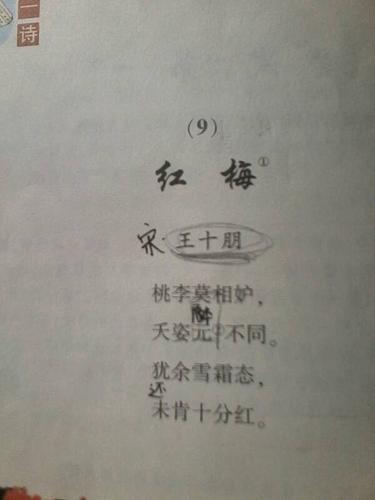 一
诗
(9)
红 梅①
宋·王十朋
桃李莫相妒,
夭姿元②不同。
犹余雪霜态,
还
未肯十分红。